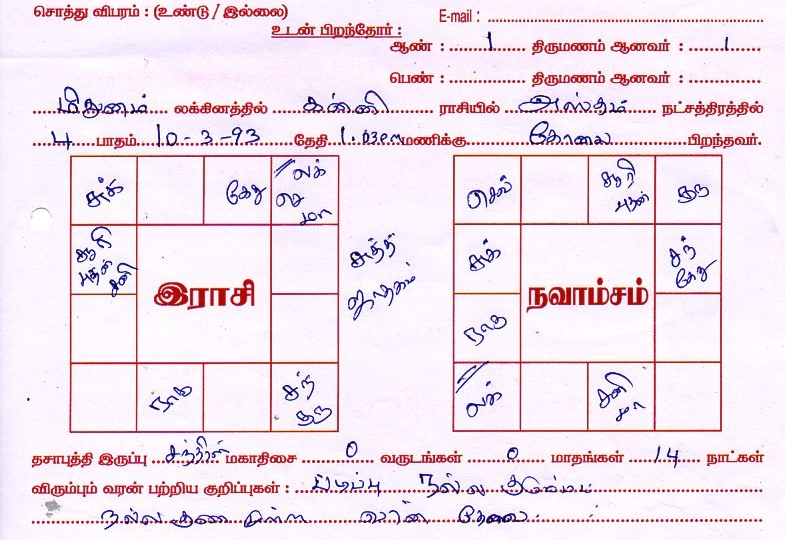 சொத்து விபரம் : (உண்டு / இல்லை)
E-mail :
உடன் பிறந்தோர் :
ஆண் : 1 திருமணம் ஆனவர் : 1
பெண் : திருமணம் ஆனவர் :
மிதுனம் லக்கினத்தில் கன்னி ராசியில் அஸ்தம் நட்சத்திரத்தில்
4 பாதம் 10-3-93 தேதி 1.03 PM மணிக்கு கோவை பிறந்தவர்.
சுக் கேது லக்
செ
மா
சூரி
புதன்
சனி
இராசி
சுத்த
ஜாதகம்
ராகு சந்
குரு
செவ் சூரி
புதன் குரு
சுக் சந்
கேது
நவாம்சம்
ராகு
லக் சனி
மா
தசாபுத்தி இருப்பு சந்திரன் மகாதிசை 0 வருடங்கள் 0 மாதங்கள் 14 நாட்கள்
விரும்பும் வரன் பற்றிய குறிப்புகள் : படிப்பு நல்ல குடும்பம்
நல்ல குண முள்ள வரன் தேவை